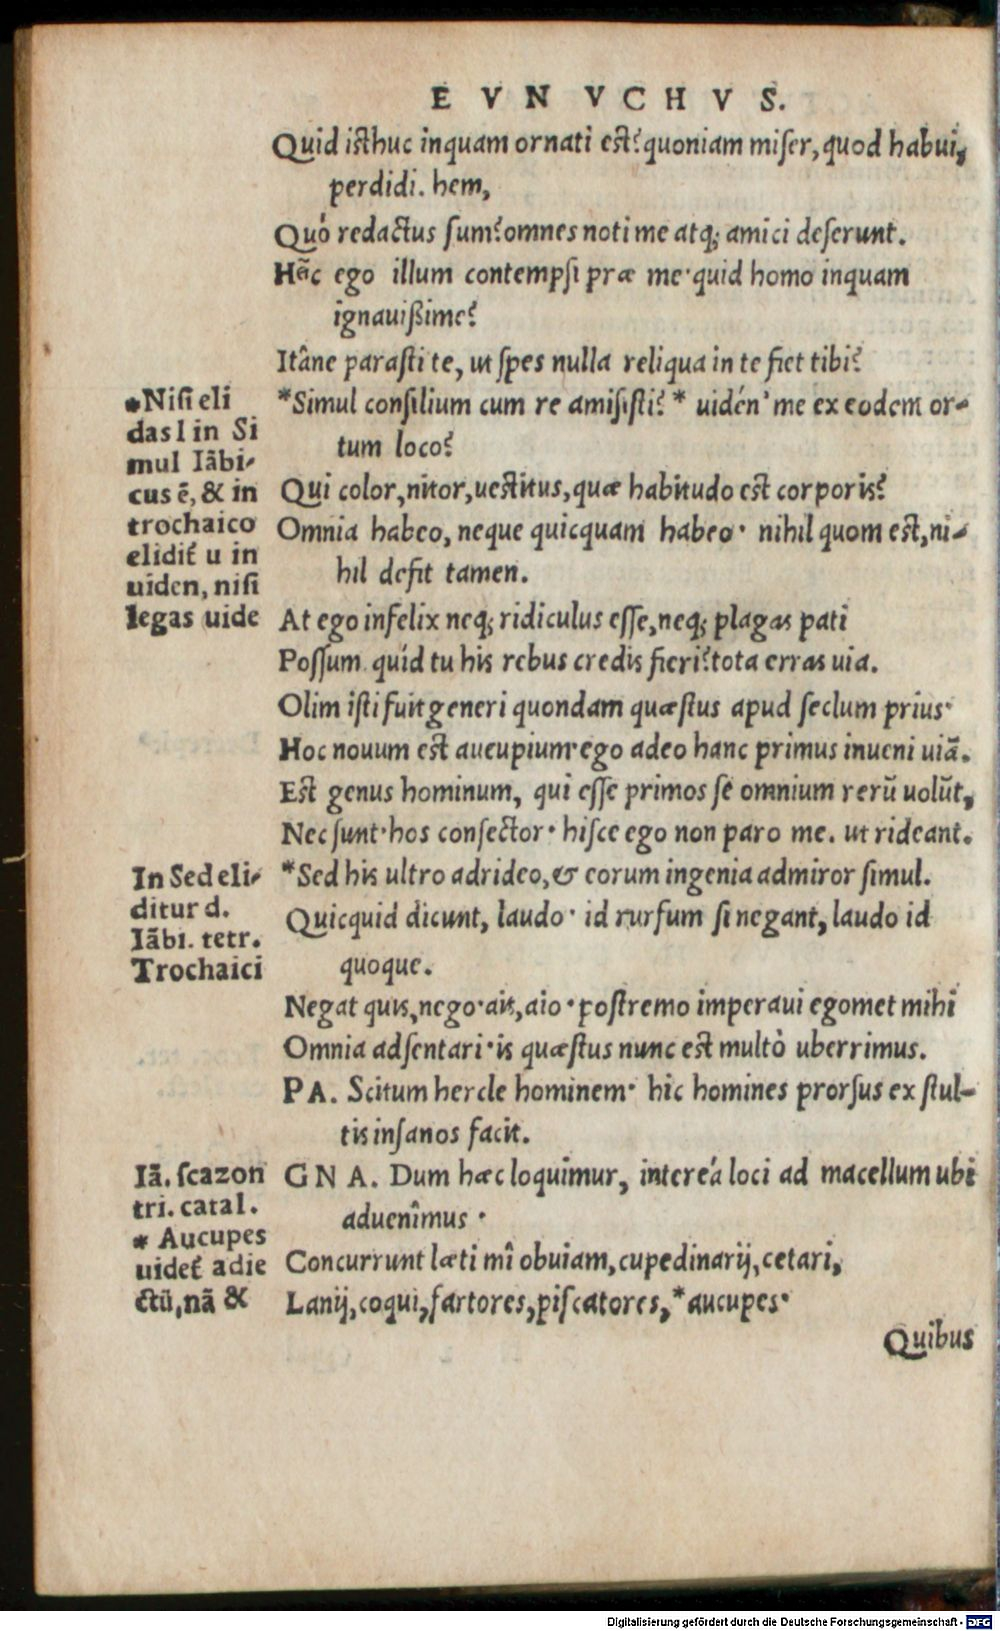 EVNVCHVS.
Quid isthuc inquam ornati est? quoniam miser, quod habui,
perdidi. hem,
Quò redactus sum? omnes noti me atq; amici deserunt.
Hêc ego illum contempsi præ me· quid homo inquam
ignauißime?
Itâne parasti te, ut spes nulla reliqua in te fiet tibi?
*Simul consilium cum re amisisti? * uidén' me ex eodem or-
tum loco?
Qui color, nitor, uestitus, quæ habitudo est corporis?
Omnia habeo, neque quicquam habeo· nihil quom est, ni-
hil defit tamen.
At ego infelix neq; ridiculus esse, neq; plagas pati
Possum. quid tu his rebus credis fieri? tota erras uia.
Olim isti fuit generi quondam quæstus apud seclum prius·
Hoc nouum est aucupium· ego adeo hanc primus inueni uiā.
Est genus hominum, qui esse primos se omnium rerū uolūt,
Nec sunt· hos consector· hisce ego non paro me. ut rideant.
*Sed his ultro adrideo, & eorum ingenia admiror simul.
Quicquid dicunt, laudo· id rursum si negant, laudo id
quoque.
Negat quis, nego· ait, aio· postremo imperaui egomet mihi
Omnia adsentari· is quæstus nunc est multò uberrimus.
PA. Scitum hercle hominem· hic homines prorsus ex stul-
tis insanos facit.
GNA. Dum hæc loquimur, intereá loci ad macellum ubi
aduenîmus·
Concurrunt læti mî obuiam, cupedinarij, cetari,
Lanij, coqui, fartores, piscatores, *aucupes·
Quibus
*Nisi eli
das l in Si
mul Iābi-
cus ē, & in
trochaico
elidit u in
uiden, nisi
legas uide
In Sed eli-
ditur d.
Iābi. tetr.
Trochaici
Iā. scazon
tri. catal.
* Aucupes
uidet adie
ctū, nā &
Digitalisierung gefördert durch die Deutsche Forschungsgemeinschaft - DFG